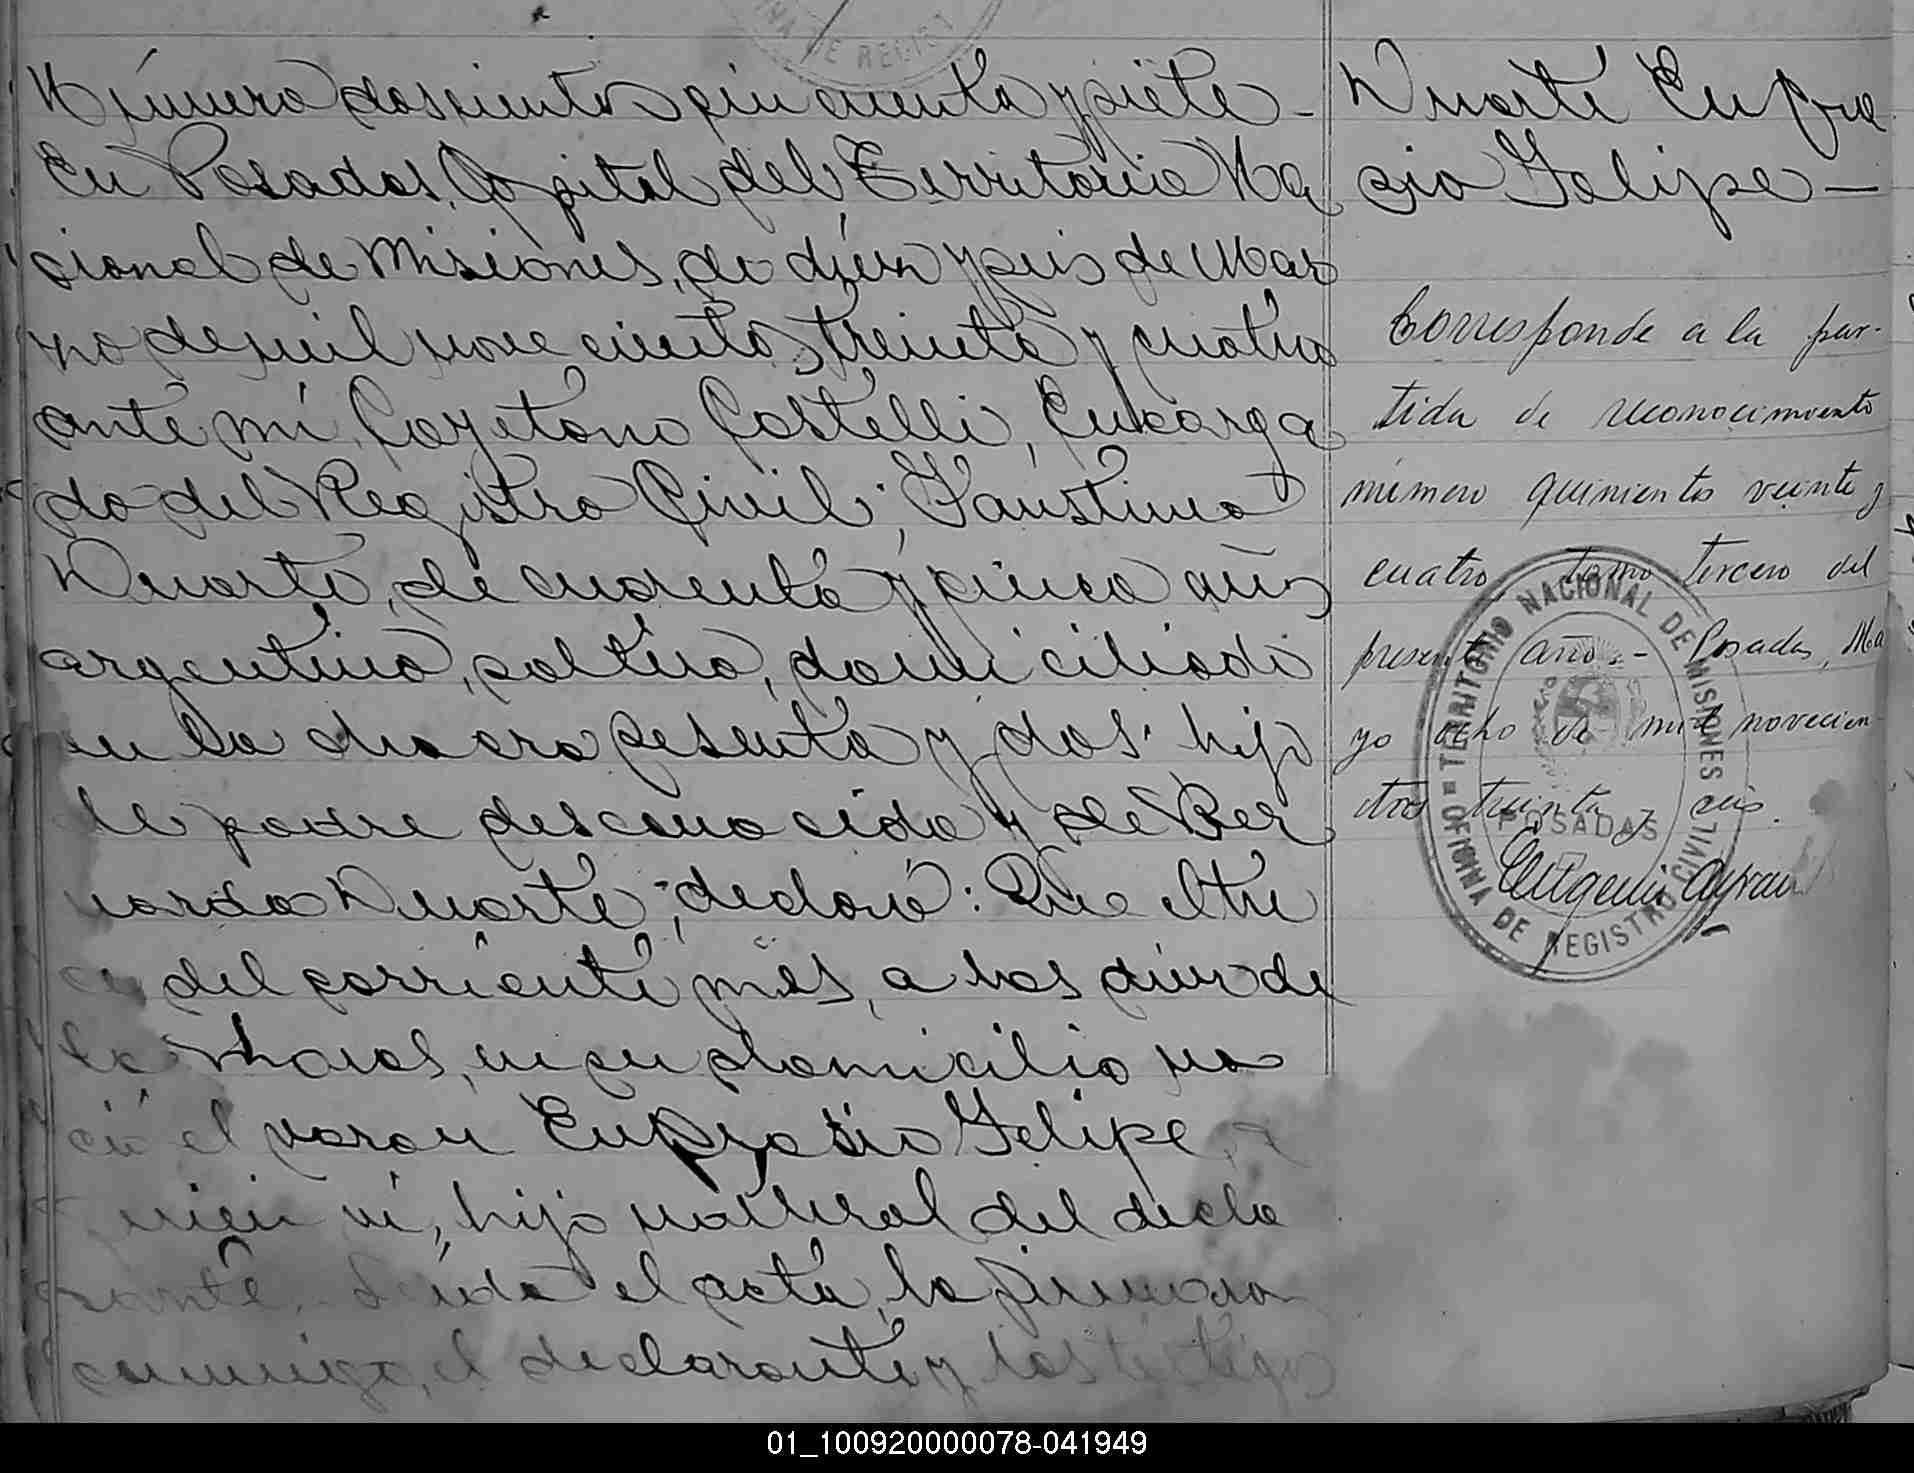 Número doscientos cincuenta y siete -
En Posadas, Capital del Territorio Na
cional de Misiones, a diez y seis de Mar
zo de mil novecientos treinta y cuatro
ante mí, Cayetano Castelli, Encarga
do del Registro Civil; Faustino
Duarte, de cuarenta y cinco años
argentino, soltero, domiciliado
en la chacra sesenta y dos; hijo
de padre desconocido y de Ber
narda Duarte; declaró: Que el tre
ce del corriente mes, a las diez de
la                , en su domicilio na
ció el varon Eufrasio Felipe, a
quien ví, hijo natural del decla
rante. Leída el acta, la firmaron
conmigo, el declarante y los testigos
Duarte Eufra
sio Felipe —
Corresponde a la par-
tida de reconocimiento
número quinientos veinte y
cuatro tomo tercero del
presente año.- Posadas, Ma
yo ocho de mil novecien-
tos treinta y seis.
TERRITORIO NACIONAL DE MISIONES
OFICINA DE REGISTRO CIVIL
POSADAS
01_100920000078-041949